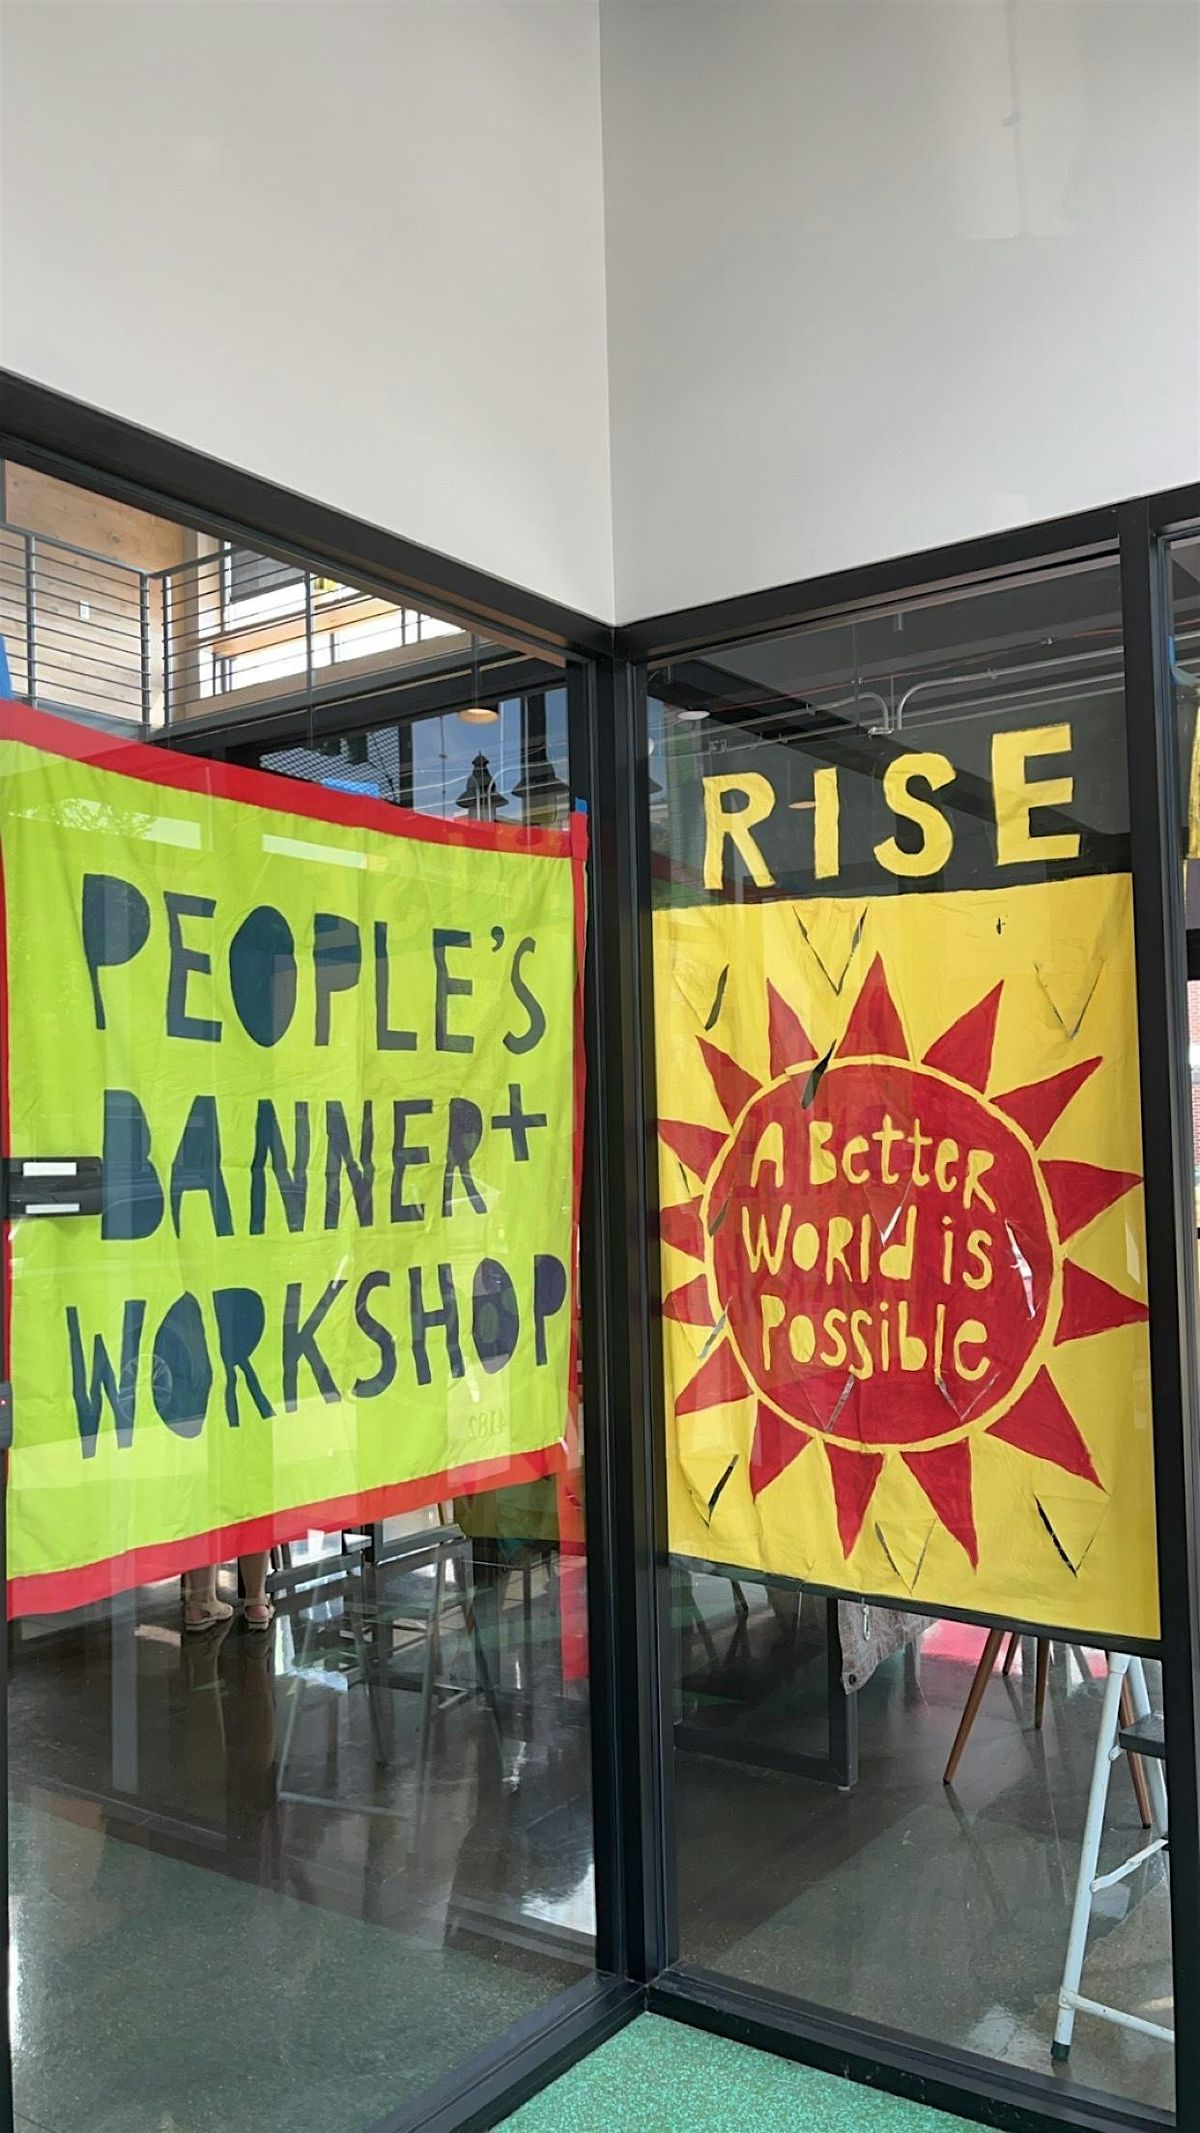 PEOPLE'S
BANNER+
WORKSHOP
4182
RISE
A Better
World is
Possible